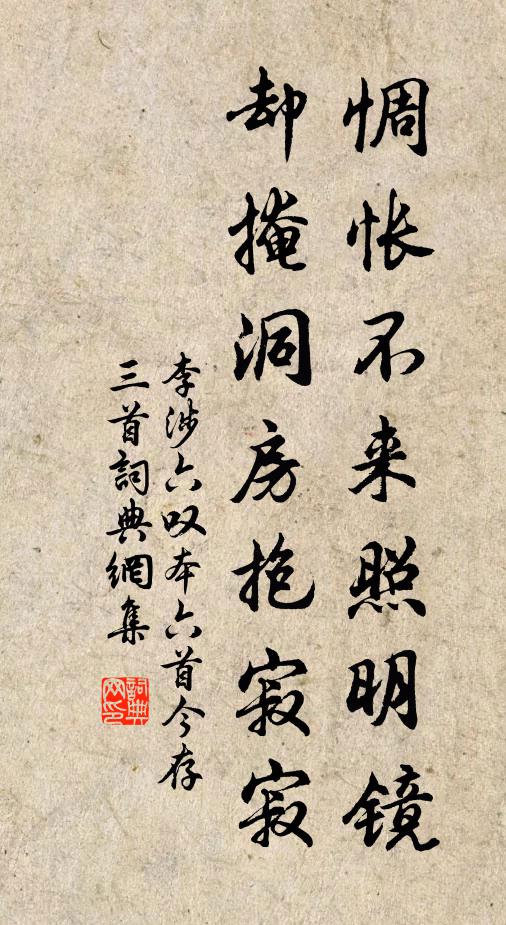 惆怅不来照明镜
却掩洞房抱寂寂
李涉六叹本六首今存
三首詞典網集
詞典网印